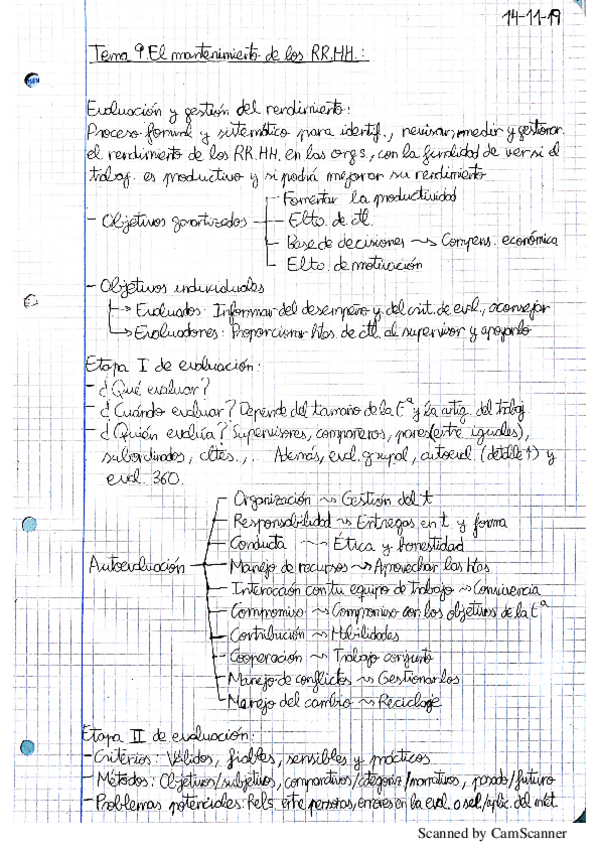 14-11-19
Tema 9. El mantenimiento de los RR.HH.:
Evaluación y gestión del rendimiento:
Proceso formal y sistemático para identif., revisar, medir y gestionar
el rendimiento de los RR.HH. en las orgs., con la finalidad de ver si el
trabaj. es productivo y si podría mejorar su rendimiento
- Objetivos garantizados
Fomentar la productividad
Elto. de ctl.
Base de decisiones ~> Compens. económica
Elto. de motivación
- Objetivos individuales
-> Evaluados: Informar del desempeño y del crit. de eval., aconsejar
-> Evaluadores: Proporcionar htas. de ctl. al supervisor y apoyarlo
Etapa I de evaluación:
- ¿Qué evaluar?
- ¿Cuándo evaluar? Depende del tamaño de la Eª y la antig. del trabaj.
- ¿Quién evalúa? Supervisores, compañeros, pares (entre iguales),
subordinados, cltes., . Además, eval. grupal, autoeval. (detalle 1) y
eval. 360.
Autoevaluación
Organización ~> Gestión del t
Responsabilidad ~> Entregas en t y forma
Conducta ~> Ética y honestidad
Manejo de recursos ~> Aprovechar las htas
Interacción con tu equipo de trabajo ~> Convivencia
Compromiso ~> Compromiso con los objetivos de la Eª
Contribución ~> Habilidades
Cooperación ~> Trabajo conjunto
Manejo de conflictos ~> Gestionarlos
Manejo del cambio ~> Reciclaje
Etapa II de evaluación:
- Criterios: Válidos, fiables, sensibles y prácticos
- Métodos: Objetivos/subjetivos, comparativos/categoría/narrativos, pasado/futuro
- Problemas potenciales: Rels. entre personas, errores en la eval. o sel./aplic. del mét.
Scanned by CamScanner